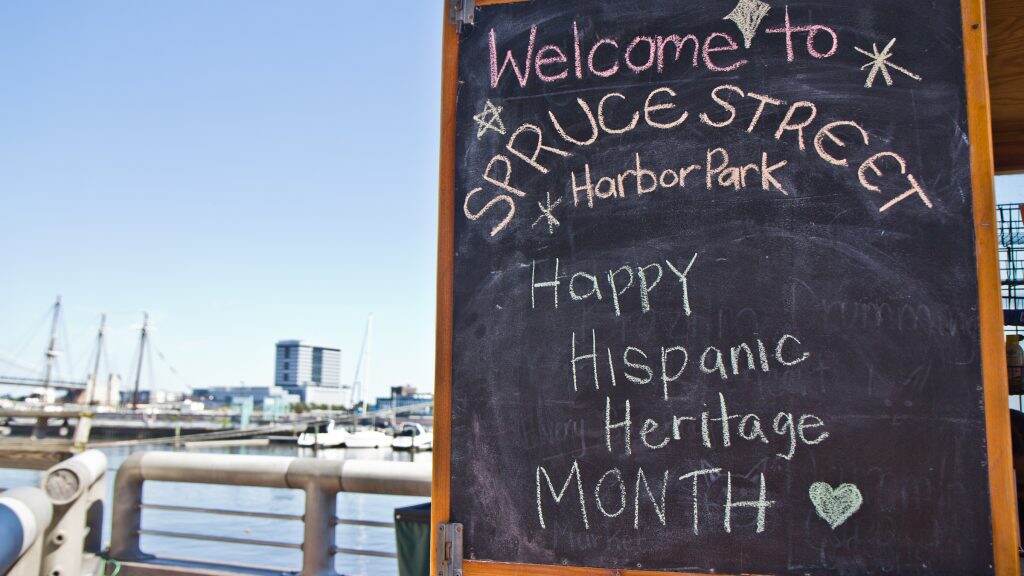 Welcome to
SPRUCE STREET
Harbor Park
Happy
Hispanic
Heritage
MONTH